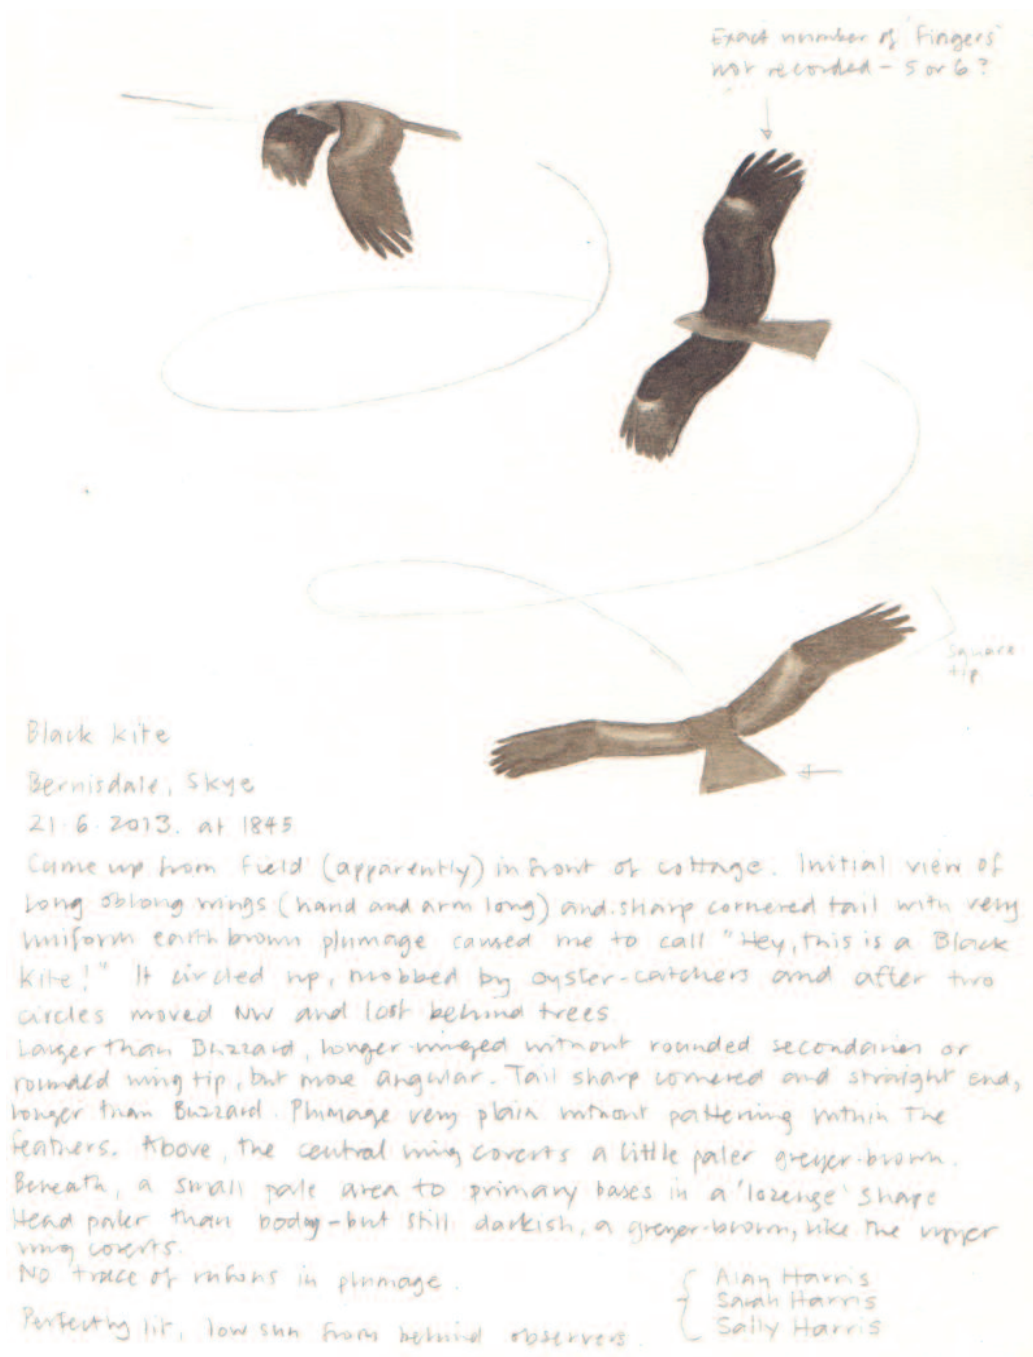 Exact number of 'fingers'
not recorded - 5 or 6?
square
tip
Black kite
Bernisdale, Skye
21·6·2013. at 1845
Came up from field (apparently) in front of cottage. Initial view of
long oblong wings (hand and arm long) and sharp cornered tail with very
uniform earth brown plumage caused me to call "Hey, this is a Black
kite!" It circled up, mobbed by oyster-catchers and after two
circles moved NW and lost behind trees
Larger than Buzzard, longer-winged without rounded secondaries or
rounded wing tip, but more angular. Tail sharp cornered and straight end,
longer than Buzzard. Plumage very plain without patterning within the
feathers. Above, the central wing coverts a little paler greyer-brown.
Beneath, a small pale area to primary bases in a 'lozenge' shape
Head paler than body - but still darkish, a greyer-brown, like the upper
wing coverts.
No trace of rufous in plumage.
Perfectly lit, low sun from behind observers.
Alan Harris
Sarah Harris
Sally Harris